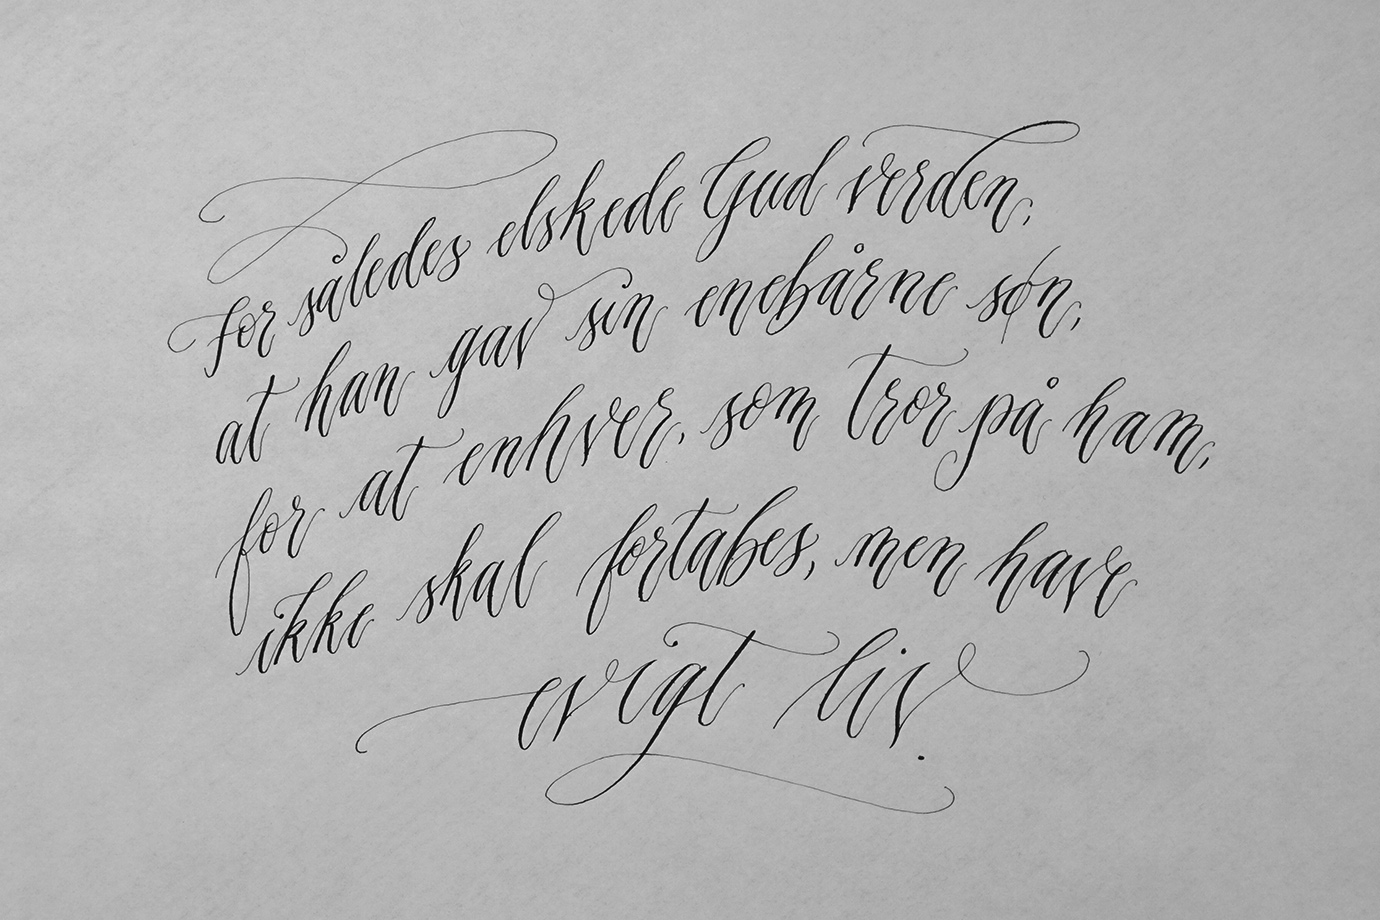 for således elskede Gud verden,
at han gav sin enebårne søn,
for at enhver, som tror på ham,
ikke skal fortabes, men have
evigt liv.